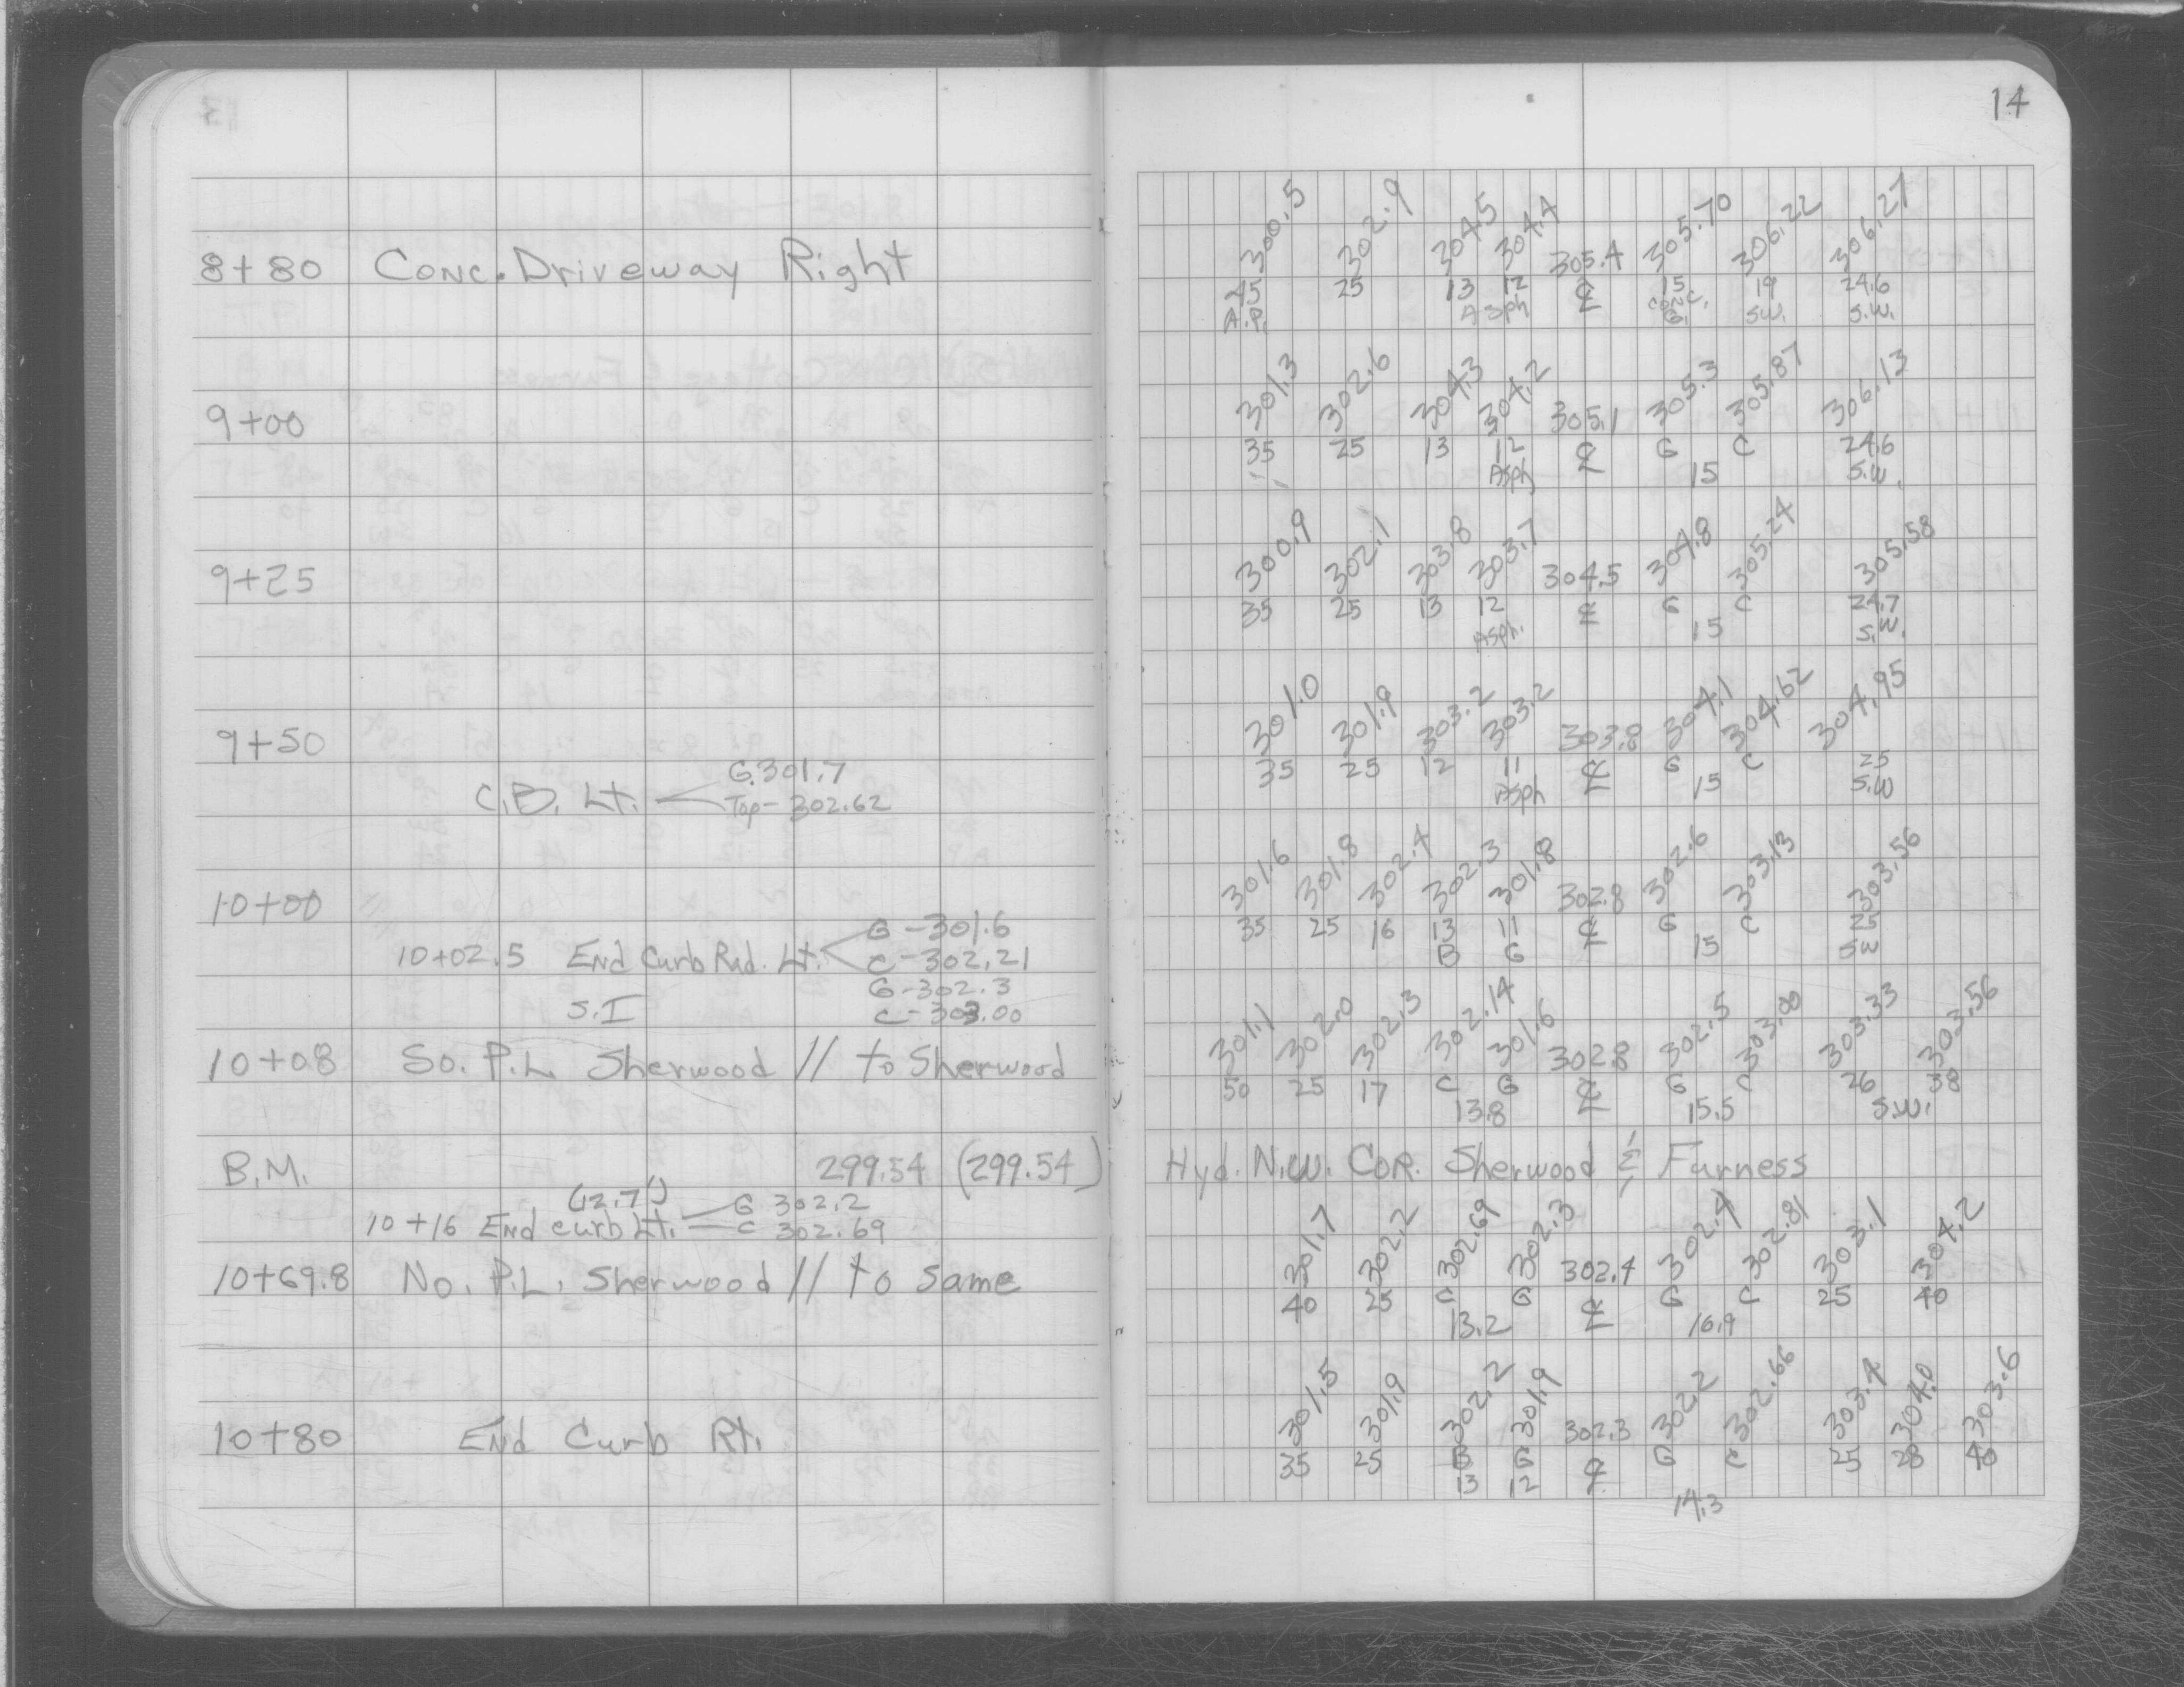 14
8+80 Conc. Driveway Right
9+00
9+25
9+50
C.B. Lt. G. 301.7
Top - 302.62
10+00
10+02.5 End Curb Rad. Lt. G - 301.6
C - 302.21
S.I G - 302.3
C - 303.00
10+08 So. P.L. Sherwood // to Sherwood
B.M. 299.54 (299.54)
(12.7')
10+16 End curb Lt. G 302.2
C 302.69
10+69.8 No. P.L. Sherwood // to Same
10+80 End Curb Rt.
300.5 302.9 304.5 304.4 305.4 305.70 306.22 306.27
25 13 12 ℄ 15 19 24.6
A.P. Asph Conc. G. S.W. S.W.
301.3 302.6 304.3 304.2 305.1 305.3 305.87 306.13
35 25 13 12 ℄ G C 24.6
Asph 15 S.W.
300.9 302.1 303.8 303.7 304.5 304.8 305.24 305.58
35 25 13 12 ℄ G C 24.7
Asph. 15 S.W.
301.0 301.9 303.2 303.2 303.8 304.1 304.62 304.95
35 25 12 11 ℄ G C 25
Asph 15 S.W
301.6 301.8 302.4 302.3 301.8 302.8 302.6 303.13 303.56
35 25 16 13 11 ℄ G C 25
B G 15 SW
301.1 302.0 302.3 302.14 301.6 302.8 302.5 303.00 303.33 303.56
50 25 17 C G ℄ G C 26 38
13.8 15.5 S.W.
Hyd. N.W. Cor. Sherwood & Furness
301.7 302.2 302.69 302.3 302.4 302.4 302.81 303.1 304.2
40 25 C G ℄ G C 25 40
13.2 16.9
301.5 301.9 302.2 301.9 302.3 302.2 302.66 303.4 304.0 303.6
35 25 B G ℄ G C 25 28 40
13 12 14.3